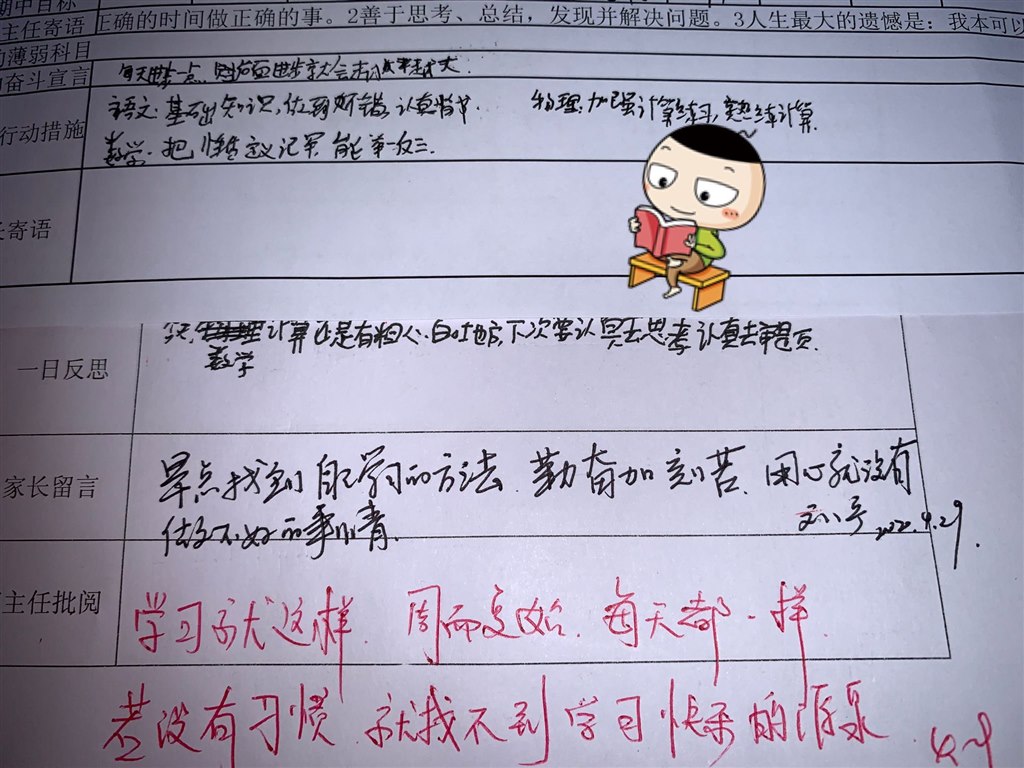 期中目标
主任寄语 正确的时间做正确的事。2善于思考、总结，发现并解决问题。3人生最大的遗憾是：我本可以
薄弱科目
奋斗宣言 每天进步一点
行动措施 语文：基础知识,做到不错,认真书
物理：加强计算练习,熟练计算.
数学：把 这记牢 能举一反三.
长寄语
计算还是有粗心 下次要认真去思考认真去审题
数学
一日反思
家长留言 早点找到自己学习的方法 勤奋加刻苦 用心就没有
做不好的事情. 2022.4.29
主任批阅 学习就这样. 周而复始. 每天都一样.
若没有习惯 就找不到学习快乐的源泉.